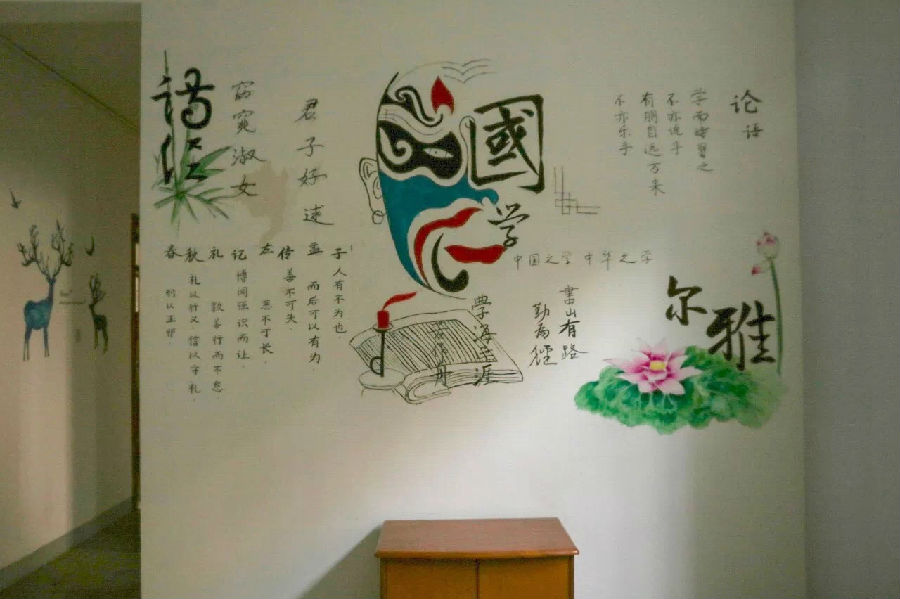 窈窕淑女
君子好逑
國
学
论语
学而時習之
不亦说乎
有朋自远方来
不亦乐乎
中国之学 中华之学
書山有路
勤為徑
學海无涯
尔雅
春秋 礼记 左传 孟子
人有不为也，
而后可以有为
善不可失，
恶不可长
博闻强识而让，
敦善行而不怠
礼以行义 信以守礼，
刑以正邪，